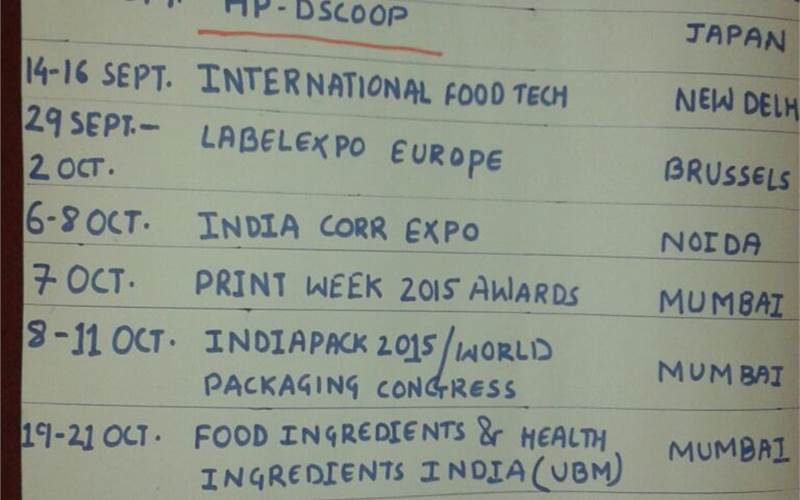 HP-DSCOOP JAPAN
14-16 SEPT. INTERNATIONAL FOOD TECH NEW DELH
29 SEPT.- LABELEXPO EUROPE BRUSSELS
2 OCT.
6-8 OCT. INDIA CORR EXPO NOIDA
7 OCT. PRINT WEEK 2015 AWARDS MUMBAI
8-11 OCT. INDIAPACK 2015/WORLD MUMBAI
PACKAGING CONGRESS
19-21 OCT. FOOD INGREDIENTS & HEALTH MUMBAI
INGREDIENTS INDIA (UBM)